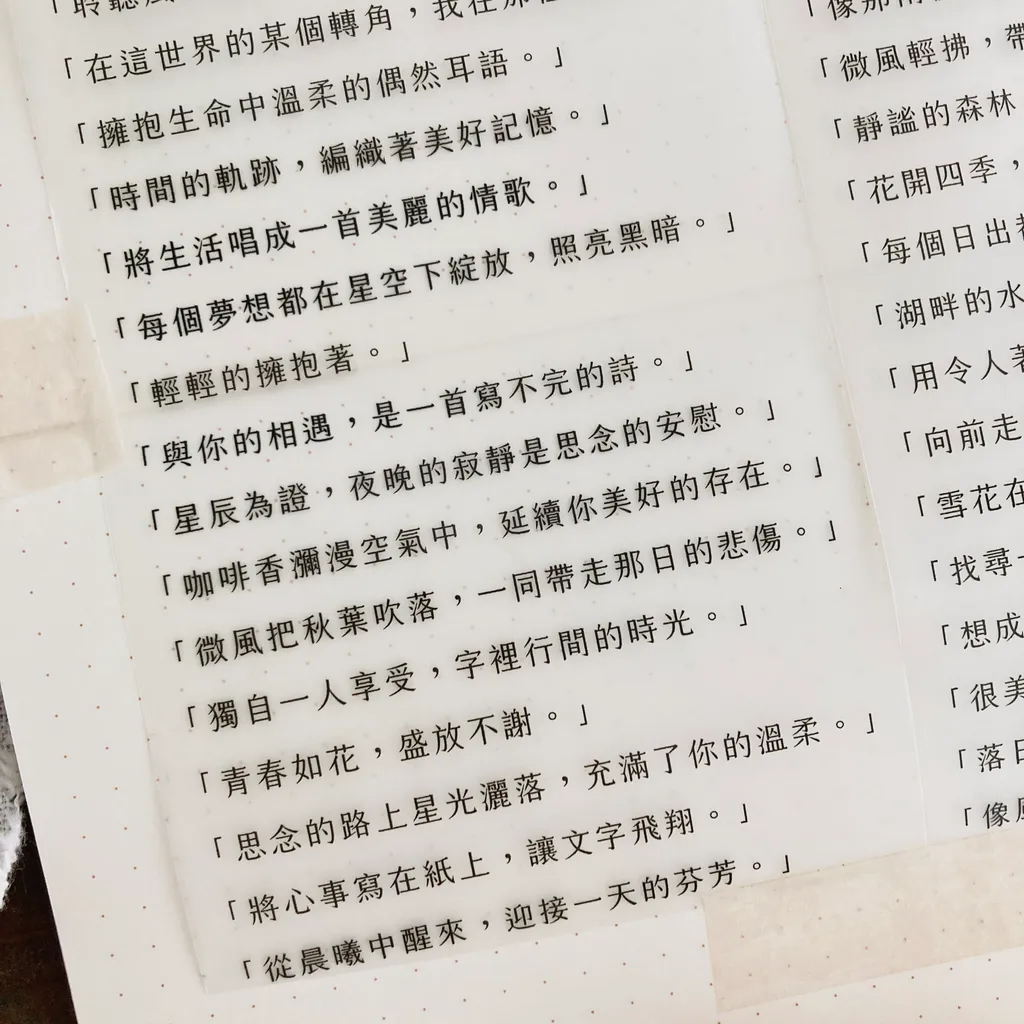 「聆聽風
「在這世界的某個轉角，我在那
「擁抱生命中溫柔的偶然耳語。」
「時間的軌跡，編織著美好記憶。」
「將生活唱成一首美麗的情歌。」
「每個夢想都在星空下綻放，照亮黑暗。」
「輕輕的擁抱著。」
「與你的相遇，是一首寫不完的詩。」
「星辰為證，夜晚的寂靜是思念的安慰。」
「咖啡香瀰漫空氣中，延續你美好的存在。」
「微風把秋葉吹落，一同帶走那日的悲傷。」
「獨自一人享受，字裡行間的時光。」
「青春如花，盛放不謝。」
「思念的路上星光灑落，充滿了你的溫柔。」
「將心事寫在紙上，讓文字飛翔。」
「從晨曦中醒來，迎接一天的芬芳。」
「像那
「微風輕拂，帶
「靜謐的森林
「花開四季，
「每個日出都
「湖畔的水
「用令人著
「向前走
「雪花在
「找尋
「想成
「很美
「落日
「像風